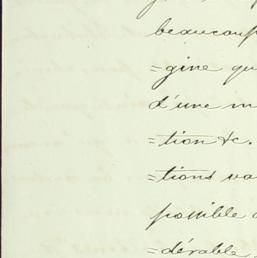 beaucoup
=gine qu
d'une m
=tion &c.
=tions va
possible
=dérable